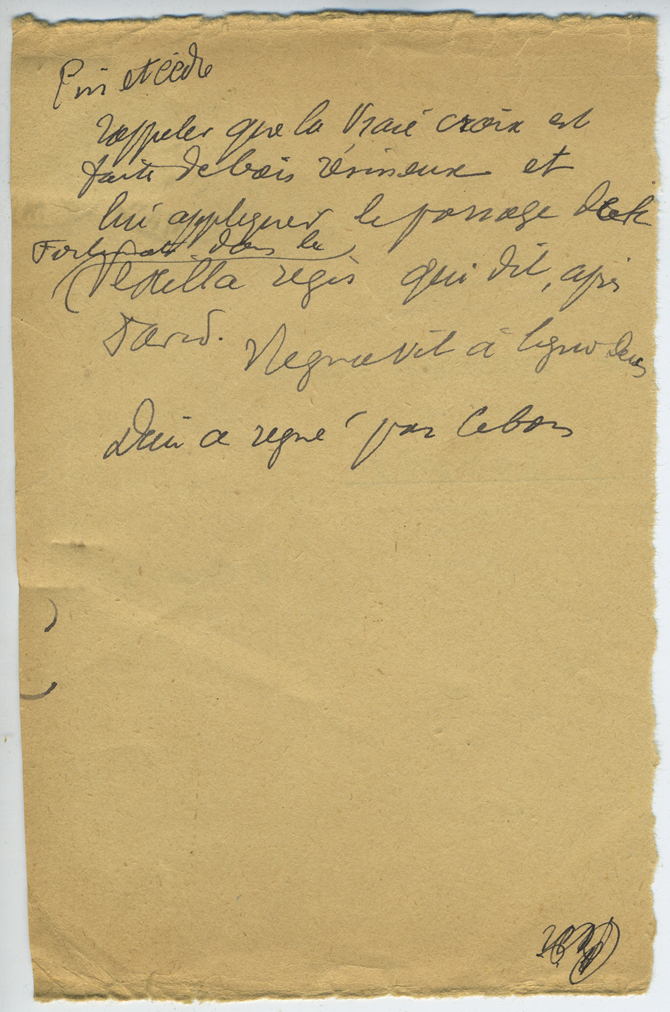 Pin et cèdre
rappeler que la vraie croix est
faite de bois résineux et
lui appliquer le passage de
Fortunat dans le
Vexilla regis qui dit, après
David. Regnavit a ligno Deus
Dieu a régné par le bois